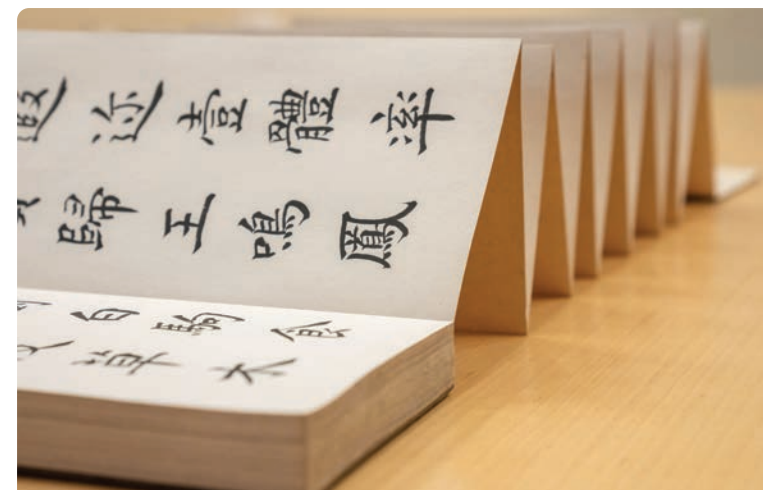 遐迩壹體率
歸王鳴鳳
白駒食
草木